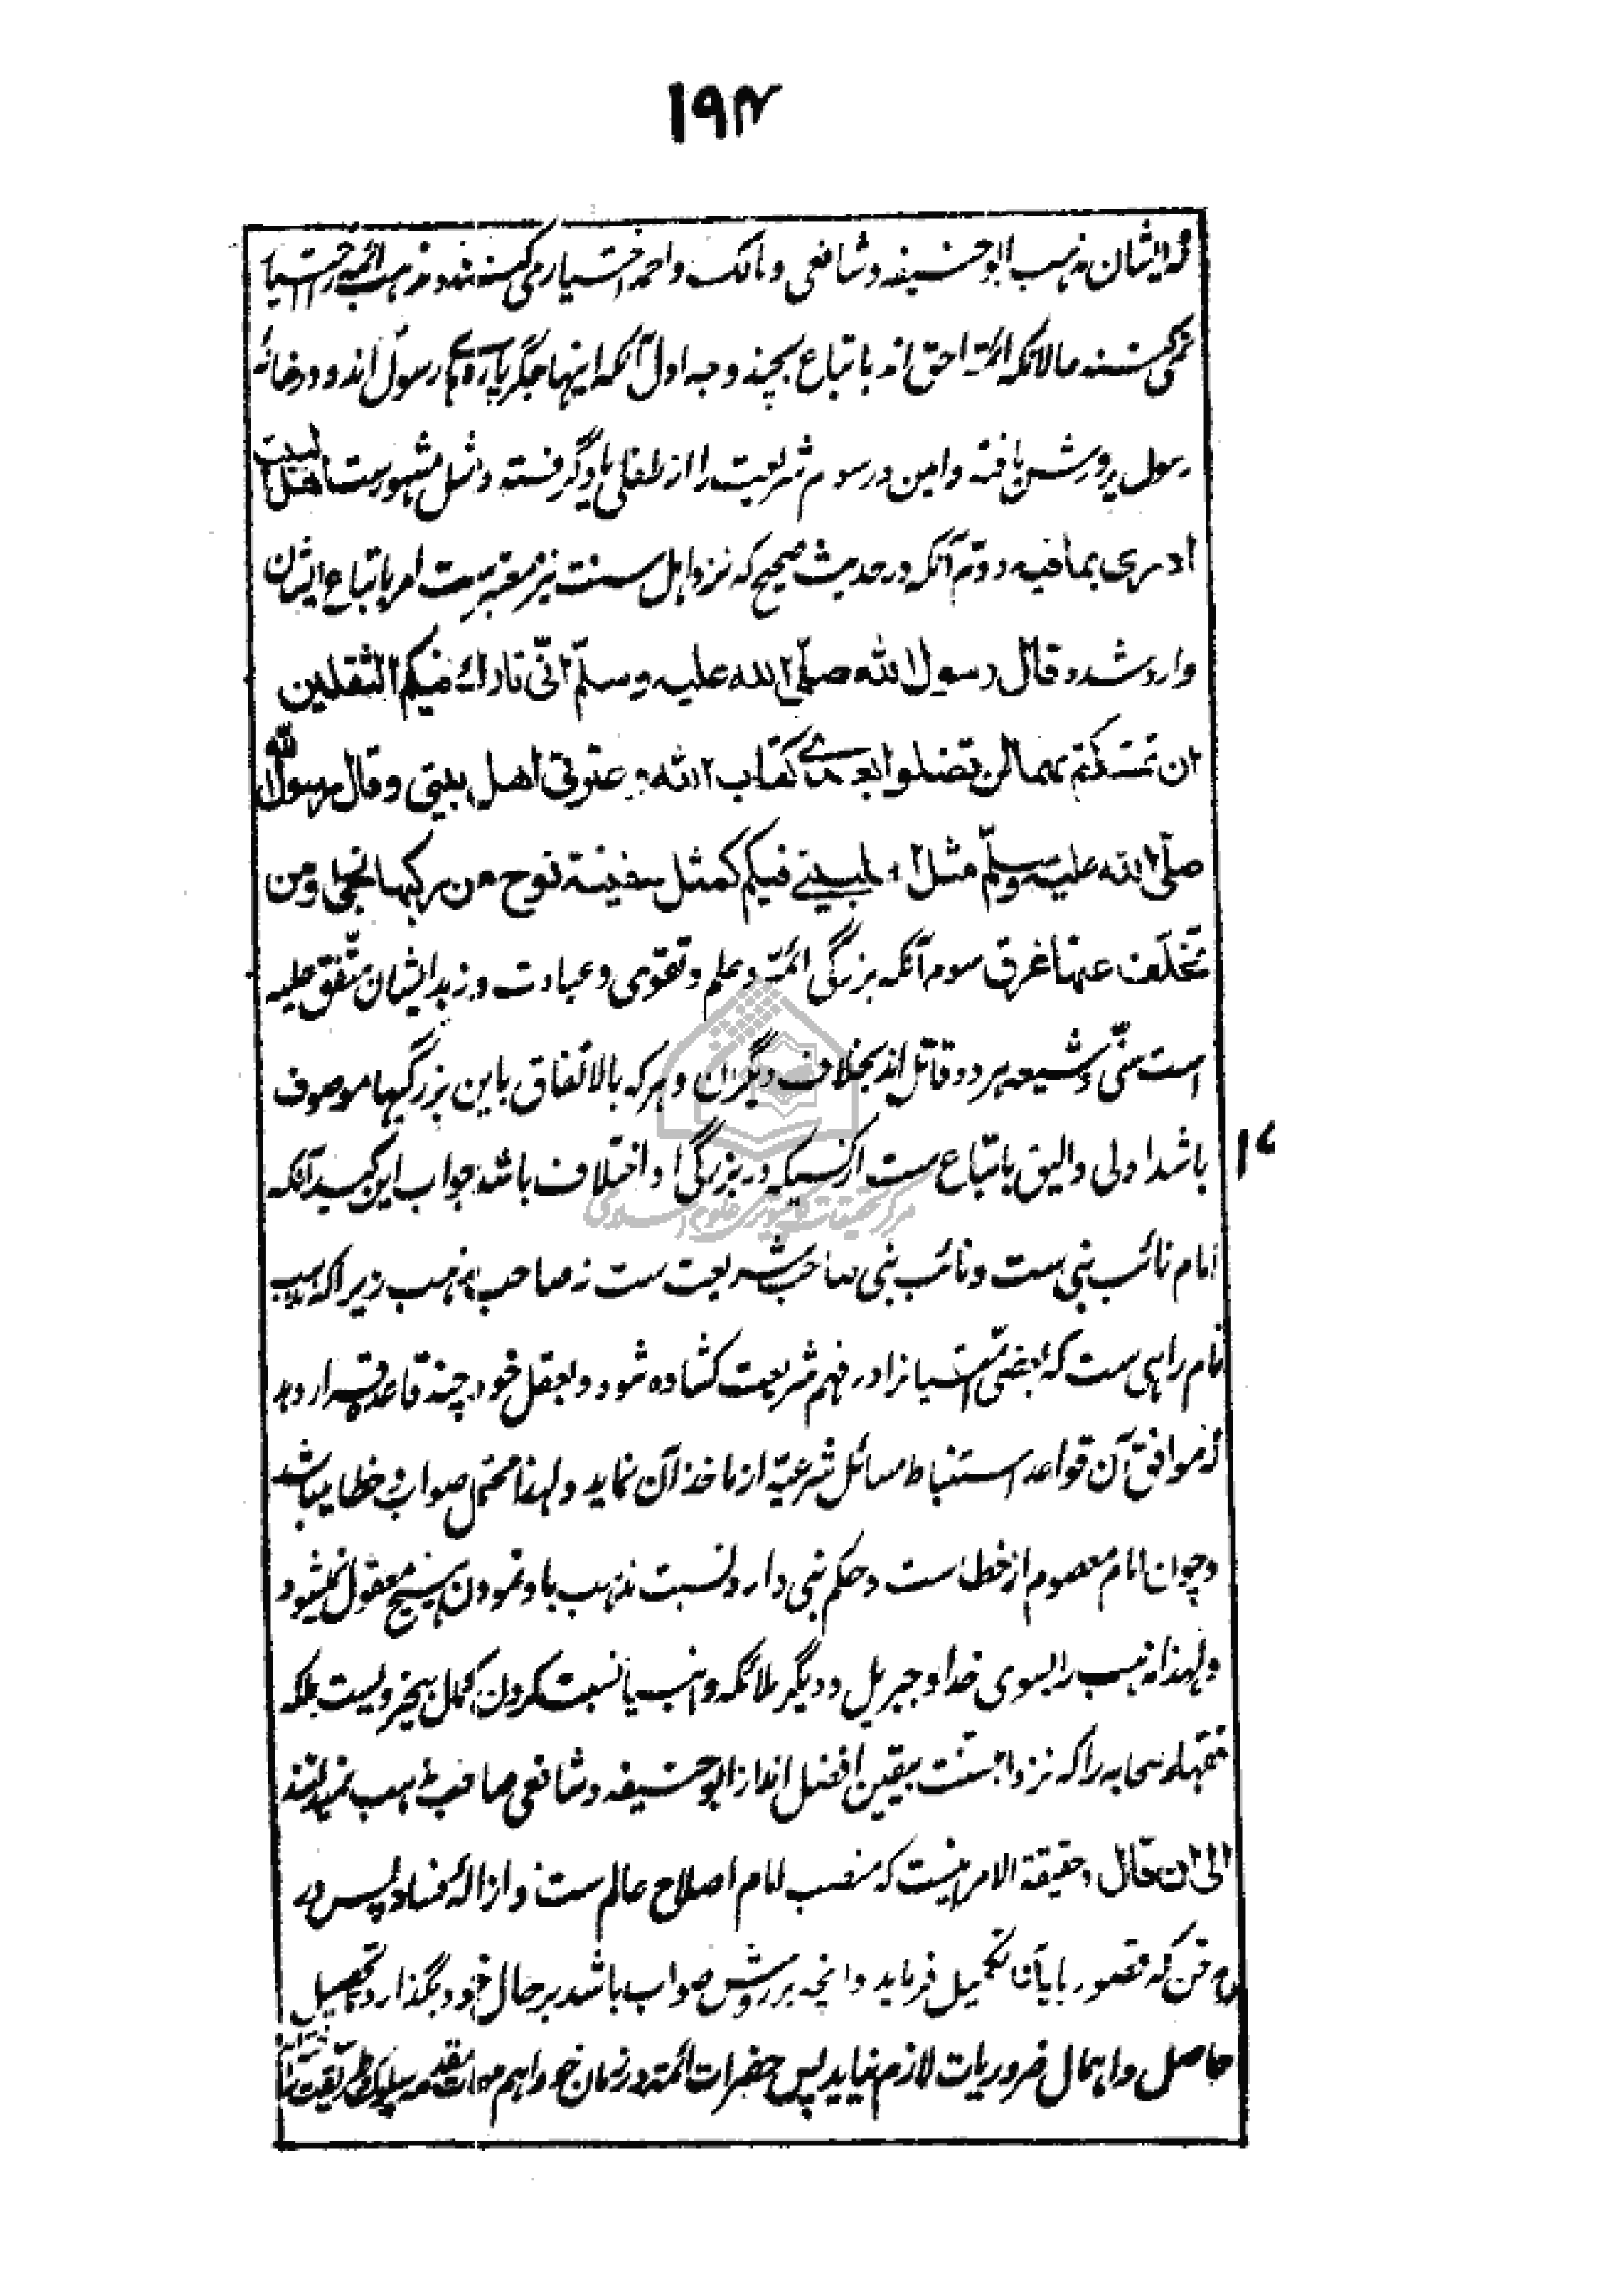 ۱۹۴
که ایشان مذهب ابو حنیفه و شافعی و مالک و احمد اختیار می کنند و مذهب ائمه را اختیار
نمی کنند حالانکه ائمّه احق اند باتباع بچند وجه اول آنکه اینها جگر پارهٔ رسول اند و در خانهٔ
رسول پرورش یافته و آیین و رسوم شریعت را از طفلی یاد گرفته و مثل مشهورست اهل البیت
ادری بما فیه دوّم آنکه در حدیث صحیح که نزد اهل سنت نیز معتبرست امر باتباع ایشان
وارد شده قال رسول الله صلّی الله علیه وسلّم انّی تارك فیکم الثقلین
ان تمسّکتم بهما لن تضلوا بعدی کتاب الله و عترتی اهل بیتی و قال رسول الله
صلّی الله علیه وسلّم مثل اهلبیتی فیکم کمثل سفینة نوح من رکبها نجی و من
تخلّف عنها غرق سوم آنکه بزرگی ائمّه و علم و تقوی و عبادت و زهد ایشان متّفق علیه
است سنّی و شیعه هر دو قائل اند بخلاف دیگران و هر که بالاتفاق باین بزرگیها موصوف
باشد اولی و الیق باتباع ست از کسیکه در بزرگی او اختلاف باشد جواب این کید آنکه
امام نائب نبی ست و نائب نبی صاحب شریعت ست نه صاحب مذهب زیرا که مذهب
نام راهی ست که بعضی امّتیانرا در فهم شریعت کشاده شود و بعقل خود چند قاعده قرار دهد
که موافق آن قواعد استنباط مسائل شرعیّه از ماخذ آن نماید و لهذا محتمل صواب و خطا میباشد
و چون امام معصوم از خطاست و حکم نبی دارد نسبت مذهب باو نمودن هیچ معقول نمیشود
و لهذا مذهب را بسوی خدا و جبریل و دیگر ملائکه و انبیا نسبت کردن کمال بیخردیست بلکه
فقهاء صحابه را که نزد اهلسنّت بیقین افضل اند از ابو حنیفه و شافعی صاحب مذهب نمیدانند
الی ان قال و حقیقة الامر اینست که منصب امام اصلاح عالم ست و ازالهٔ فساد پس در
هر فن که قصور یابد آن تکمیل فرماید و آنچه بر روش صواب باشد بر حال خود بگذارد تا تحصیل
حاصل و اهمال ضروریات لازم نیاید پس حضرات ائمّه در زمان خود اهم مهمات مقدمه سلوك طریقت را
مرکز تحقیقات کامپیوتری علوم اسلامی